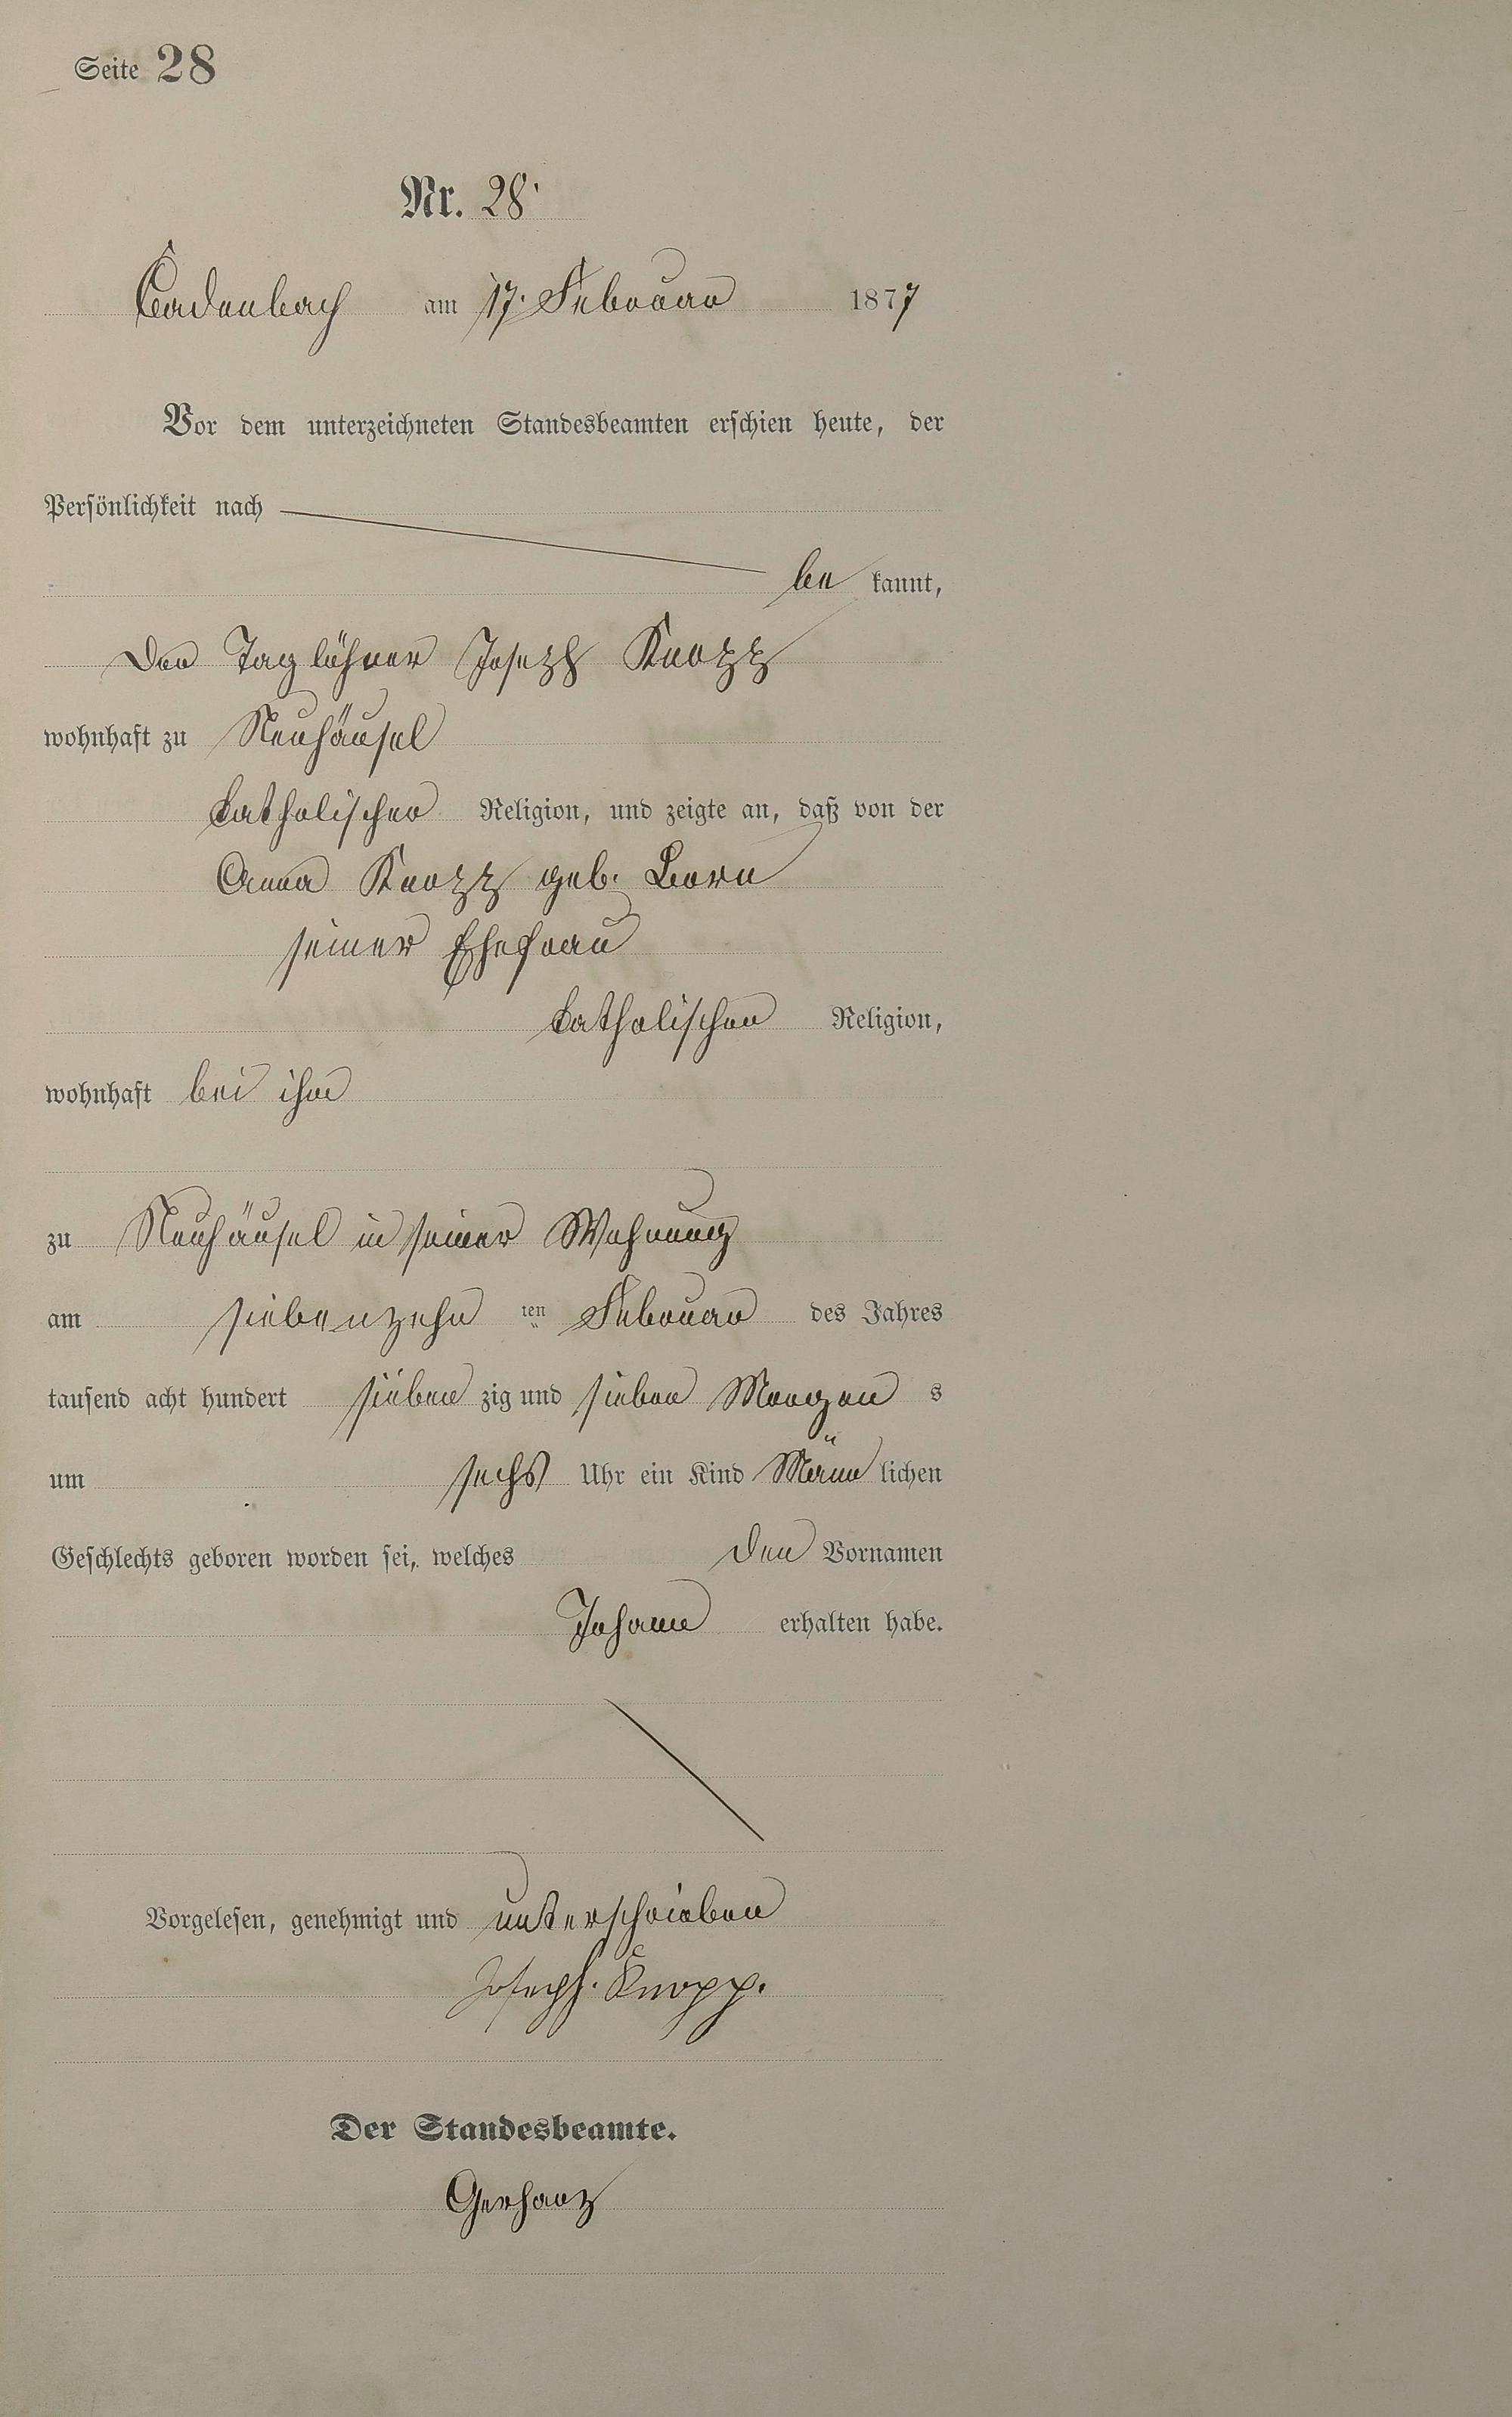 Seite 28
Nr. 28
Cadenbach am 17. Februar 1877
Vor dem unterzeichneten Standesbeamten erschien heute, der
Persönlichkeit nach
be kannt,
der Taglöhner Joseph Knopp
wohnhaft zu Neuhäusel
katholischer Religion, und zeigte an, daß von der
Anna Knopp geb. Born
seiner Ehefrau
katholischen Religion,
wohnhaft bei ihm
zu Neuhäusel in seiner Wohnung
am siebenzehn ten Februar des Jahres
tausend acht hundert sieben zig und sieben Morgen s
um sechs Uhr ein Kind Männ lichen
Geschlechts geboren worden sei, welches den Vornamen
Johann erhalten habe.
Vorgelesen, genehmigt und unterschrieben
Joseph. Knopp.
Der Standesbeamte.
Gerharz